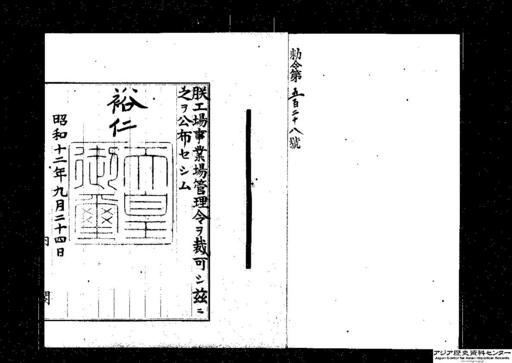 勅令第五百二十八號
朕工場事業場管理令ヲ裁可シ茲ニ
之ヲ公布セシム
裕仁
天皇御璽
昭和十二年九月二十四日
内閣
アジア歴史資料センター
Japan Center for Asian Historical Records